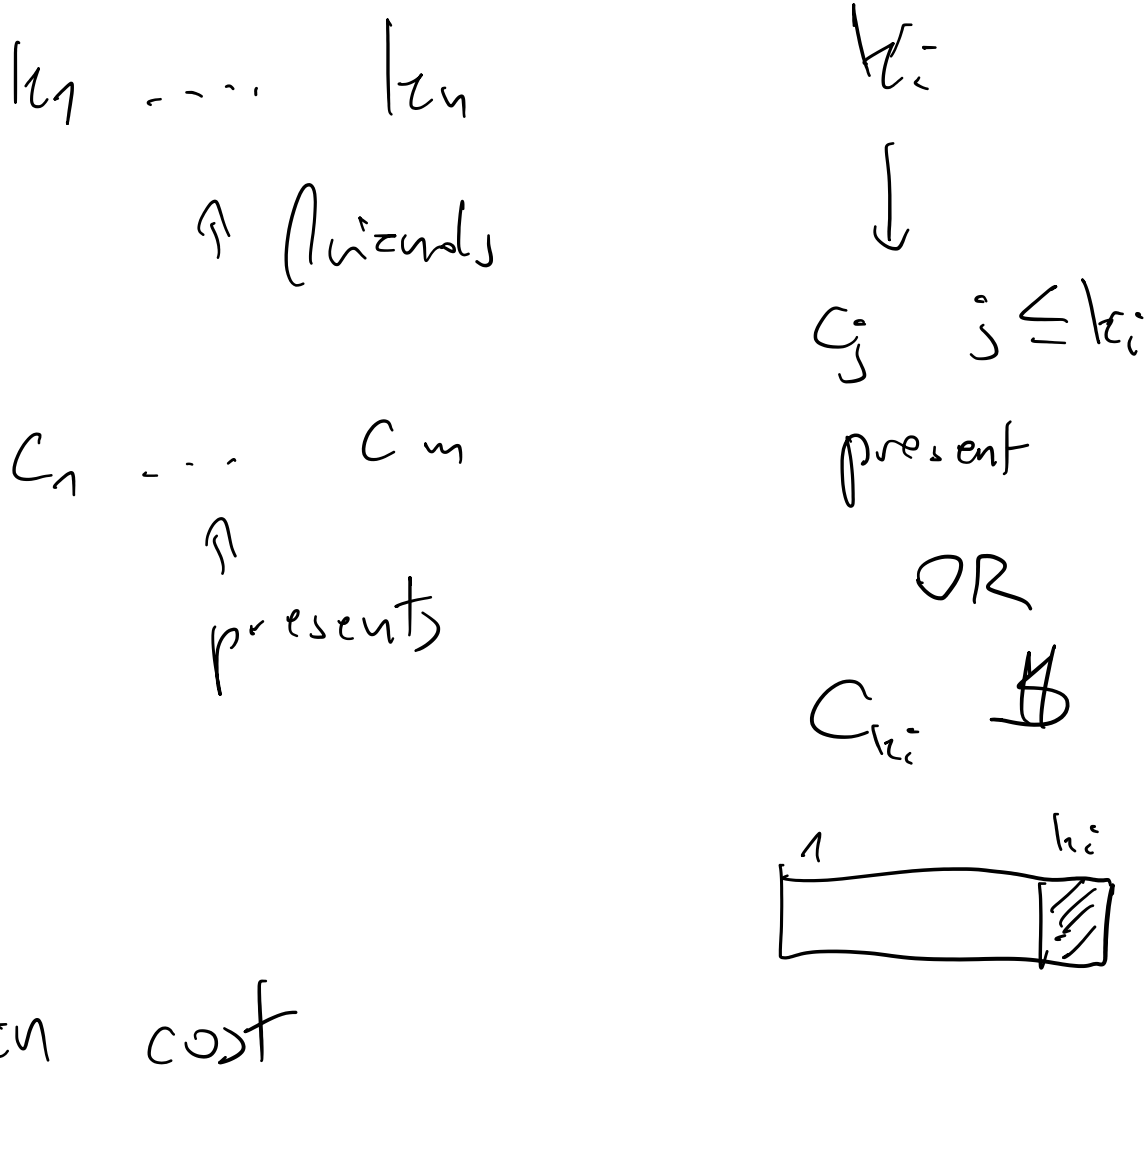 k1 .... kn
↑ friends
C1 ... Cm
↑
presents
cost
ki
↓
Cj j ≤ ki
present
OR
Cki $
1 ki